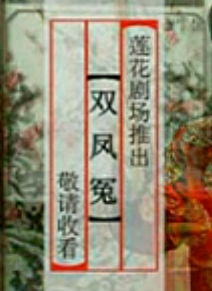 莲花剧场推出
【双凤冤】
敬请收看